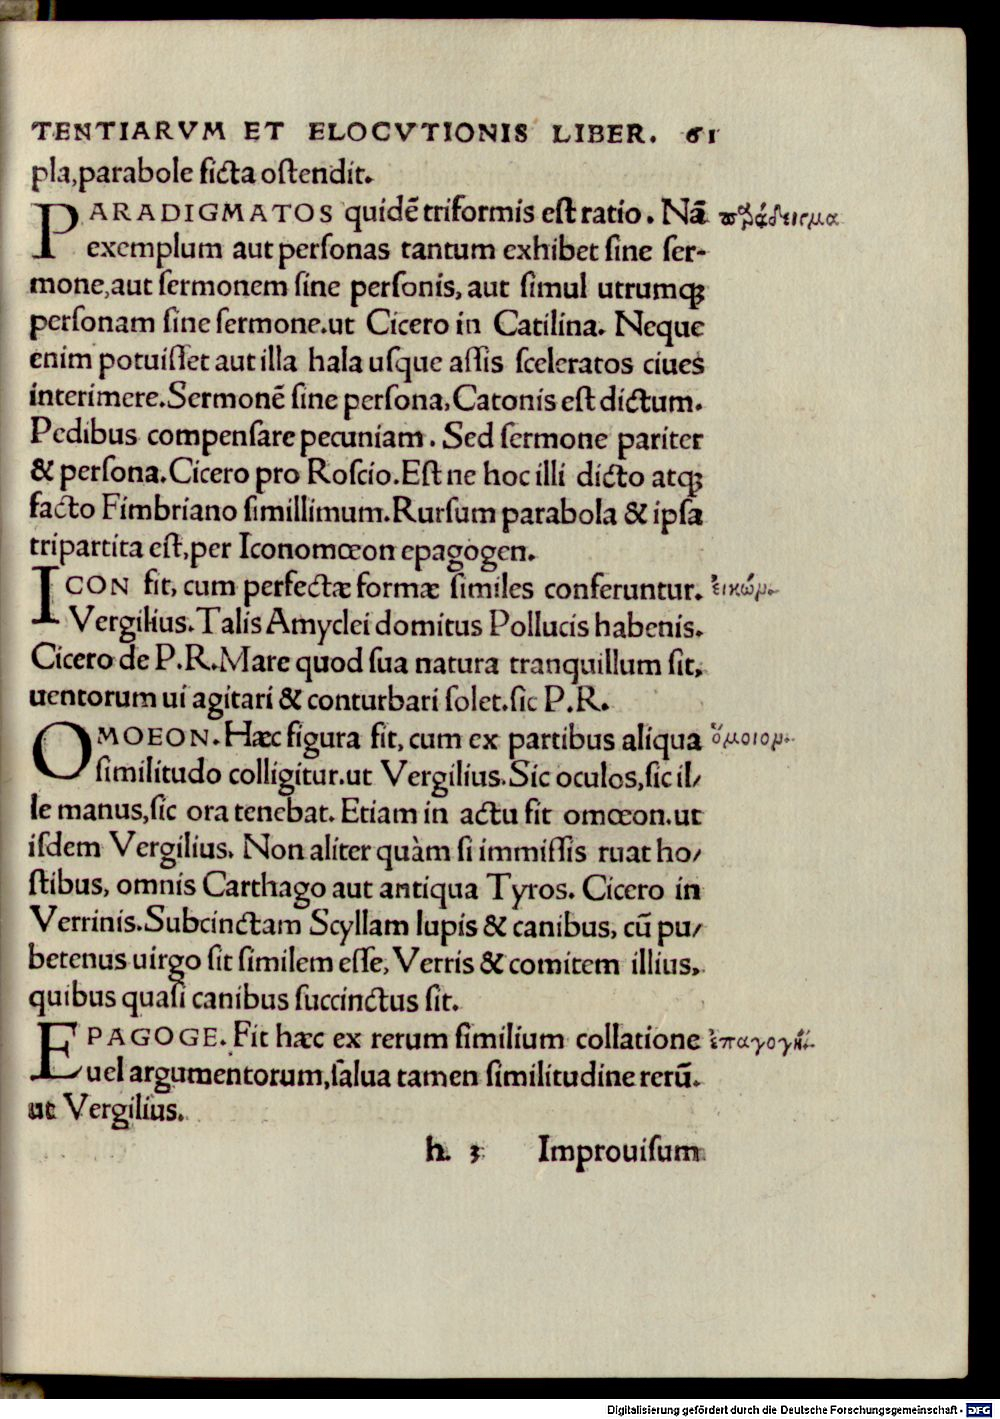 TENTIARVM ET ELOCVTIONIS LIBER. 61
pla,parabole ficta oſtendit.
PARADIGMATOS quidē triformis eſt ratio. Nā παράδειγμα
exemplum aut perſonas tantum exhibet ſine ſer-
mone,aut ſermonem ſine perſonis, aut ſimul utrumqꝫ
perſonam ſine ſermone.ut Cicero in Catilina. Neque
enim potuiſſet aut illa hala uſque aſſis ſceleratos ciues
interimere.Sermonē ſine perſona,Catonis eſt dictum.
Pedibus compenſare pecuniam. Sed ſermone pariter
& perſona.Cicero pro Roſcio.Eſt ne hoc illi dicto atqꝫ
facto Fimbriano ſimillimum.Rurſum parabola & ipſa
tripartita eſt,per Iconomœon epagogen.
ICON fit, cum perfectæ formæ ſimiles conferuntur. ἐικώμ.
Vergilius.Talis Amyclei domitus Pollucis habenis.
Cicero de P.R.Mare quod ſua natura tranquillum ſit,
uentorum ui agitari & conturbari ſolet.ſic P.R.
OMOEON.Hæc figura fit, cum ex partibus aliqua ὅμοιομ.
ſimilitudo colligitur.ut Vergilius.Sic oculos,ſic il/
le manus,ſic ora tenebat. Etiam in actu fit omœon.ut
iſdem Vergilius. Non aliter quàm ſi immiſſis ruat ho/
ſtibus, omnis Carthago aut antiqua Tyros. Cicero in
Verrinis.Subcinctam Scyllam lupis & canibus, cū pu/
betenus uirgo ſit ſimilem eſſe, Verris & comitem illius,
quibus quaſi canibus ſuccinctus ſit.
EPAGOGE.Fit hæc ex rerum ſimilium collatione ἐπαγογὴ.
uel argumentorum,ſalua tamen ſimilitudine rerū.
ut Vergilius.
h. 3 Improuiſum
Digitalisierung gefördert durch die Deutsche Forschungsgemeinschaft - DFG